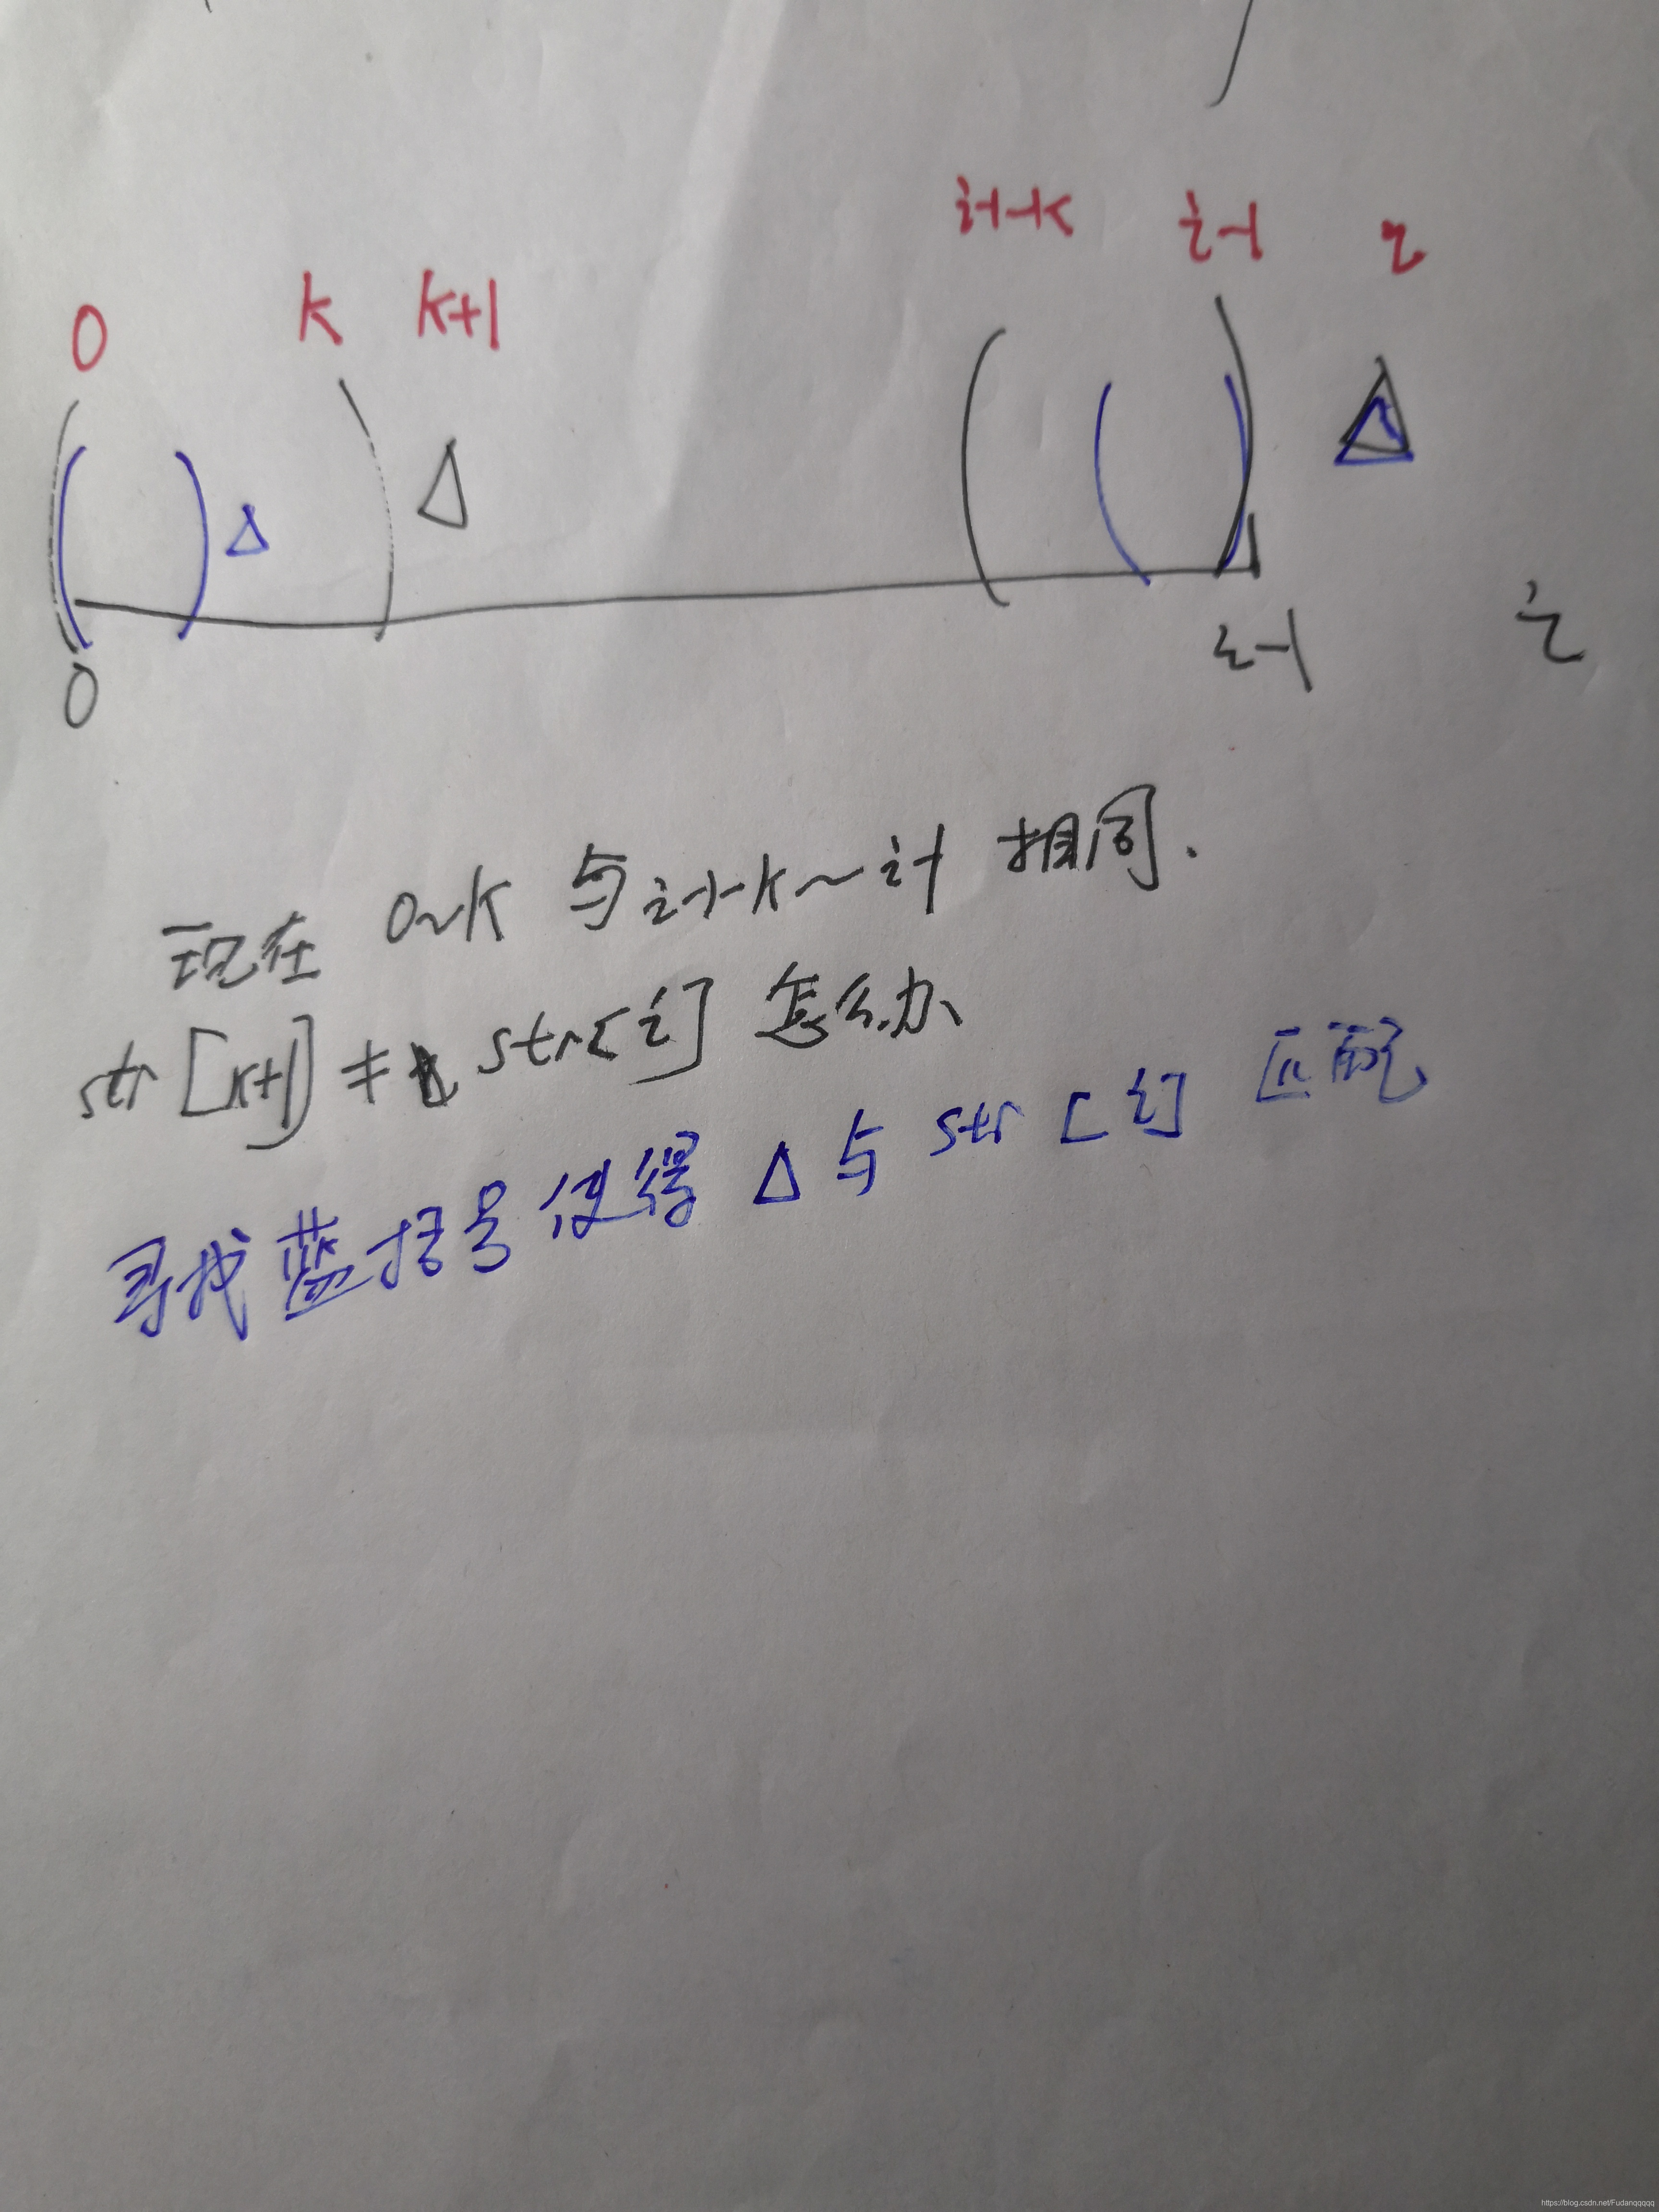 0 k k+1 i-1-k i-1 i
0 i-1 i
现在 0~k 与 i-1-k~i-1 相同.
str[k+1] ≠ str[i] 怎么办
寻找蓝括号使得 Δ 与 str[i] 匹配
https://blog.csdn.net/Fudanqqqqq